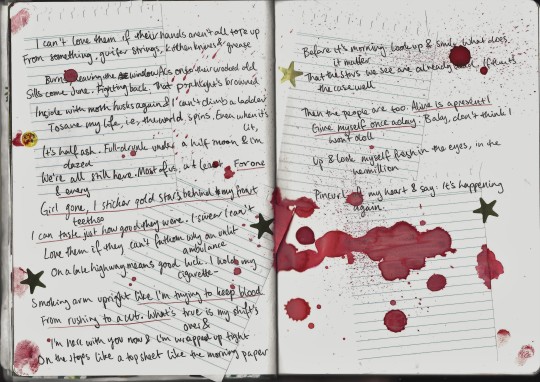 I can't love them if their hands aren't all tore up
From something. guitar strings, kitchen knives & grease
Burns leaving the windowACs onto their wooded old
Sills come June. Fighting back. That porchlight's browned
Inside with moth husks again & I can't climb a ladder
To save my life, i.e., the world, spins. Even when it's
lit,
It's half ash. Full-drunk under a half moon & I'm
dazed
We're all still here. Most of us, at least. For one
& every
Girl gone, I sticker gold stars behind my front
teeth so
I can taste just how good they were. I swear I can't
Love them if they can't fathom why an unlit
ambulance
On a late highway means good luck. I hold my
cigarette-
Smoking arm upright like I'm trying to keep blood
From rushing to a cut. What's true is my shift's
over &
I'm here with you now & I'm wrapped up tight
On the steps like a top sheet like the morning paper
Before it's morning. Look up & smile. What does
it matter
That the stars we see are already dead. If that's
the case well
Then the people are too. Alive is a present I
Give myself once a day. Baby, don't think I
won't doll
Up & look myself fresh in the eyes, in the
vermillion
Pincurl of my heart & say: It's happening
again.